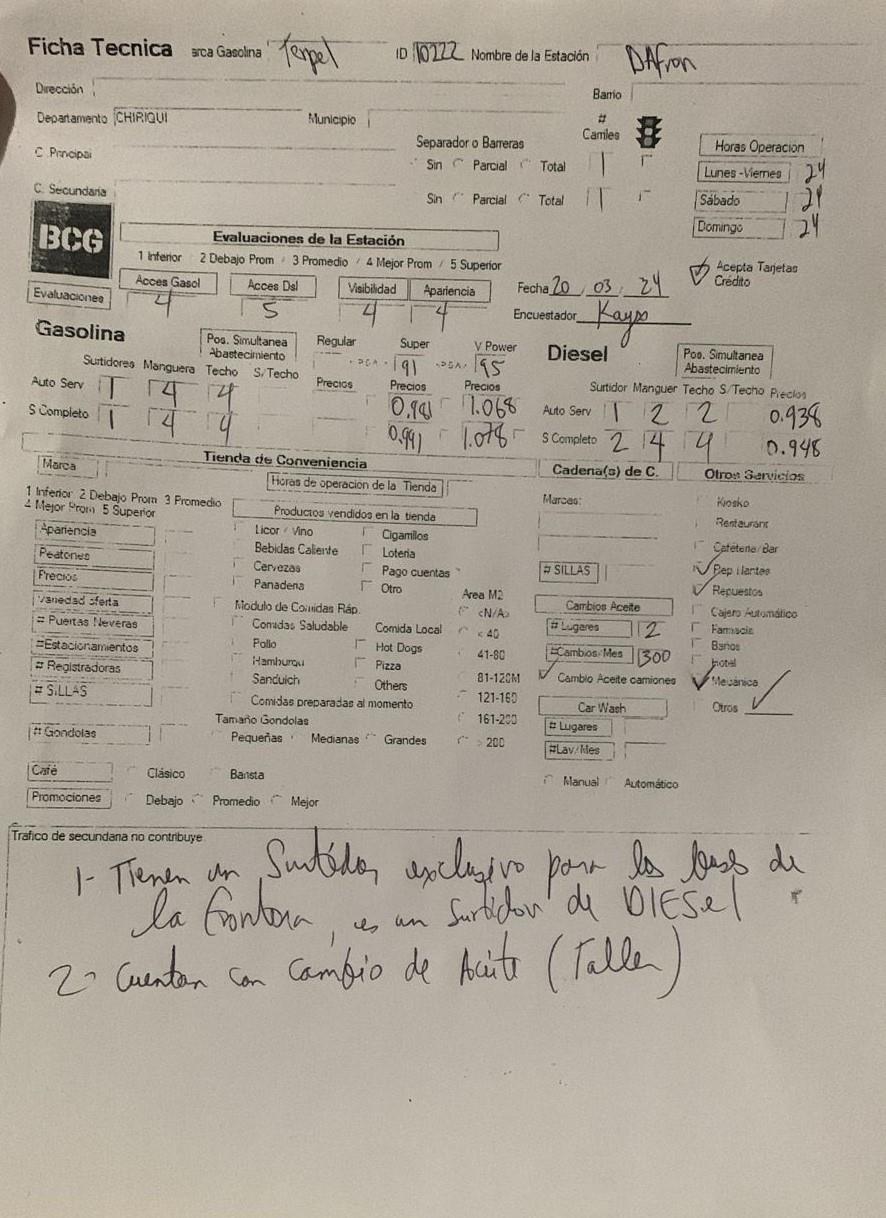 Ficha Tecnica arca Gasolina Terpel ID 10222 Nombre de la Estación DAfron
Dirección Barrio
Departamento CHIRIQUI Municipio # Carriles
C. Principal Separador o Barreras Horas Operacion
Sin Parcial Total 1 Lunes -Viernes 24
C. Secundaria Sin Parcial Total 1 Sábado 24
Domingo 24
BCG
Evaluaciones de la Estación
1 Inferior 2 Debajo Prom / 3 Promedio / 4 Mejor Prom / 5 Superior
Acepta Tarjetas Crédito
Acces Gasol Acces Dsl Visibilidad Apariencia Fecha 20, 03, 24
Evaluaciones 4 5 4 4 Encuestador Kayso
Gasolina Pos. Simultanea Abastecimiento Regular Super V Power Diesel Pos. Simultanea Abastecimiento
91 95
Surtidores Manguera Techo S/Techo Precios Precios Precios Surtidor Manguer Techo S/Techo Precios
Auto Serv 1 4 4 0.981 1.068 Auto Serv 1 2 2 0.938
S Completo 1 4 4 0.991 1.078 S Completo 2 4 4 0.948
Tienda de Conveniencia Cadena(s) de C. Otros Servicios
Marca Horas de operacion de la Tienda
1 Inferior 2 Debajo Prom 3 Promedio
4 Mejor Prom 5 Superior
Productos vendidos en la tienda
Marcas: Kiosko
Apariencia Licor / Vino Cigarrillos Restaurant
Peatones Bebidas Caliente Loteria Cafeteria/Bar
Precios Cervezas Pago cuentas # SILLAS Rep Llantas
Variedad oferta Panaderia Otro Area M2 Repuestos
# Puertas Neveras Modulo de Comidas Ráp. <N/A> Cambios Aceite Cajero Automático
#Estacionamientos Comidas Saludable Comida Local < 40 # Lugares 2 Farmacia
# Registradoras Pollo Hot Dogs 41-80 #Cambios/Mes 300 Banos
# SILLAS Hamburqu Pizza 81-120M Cambio Aceite camiones Hotel
Sanduich Others 121-160 Car Wash Mecánica
Comidas preparadas al momento 161-200 # Lugares Otros
# Gondolas Tamaño Gondolas
Pequeñas Medianas Grandes > 200 #Lav/Mes
Café Clásico Barista Manual Automático
Promociones Debajo Promedio Mejor
Trafico de secundaria no contribuye
1- Tienen un Surtidor exclusivo para los buses de
la frontera, es un surtidor de DIESel
2- Cuentan con cambio de Aceite (Taller)